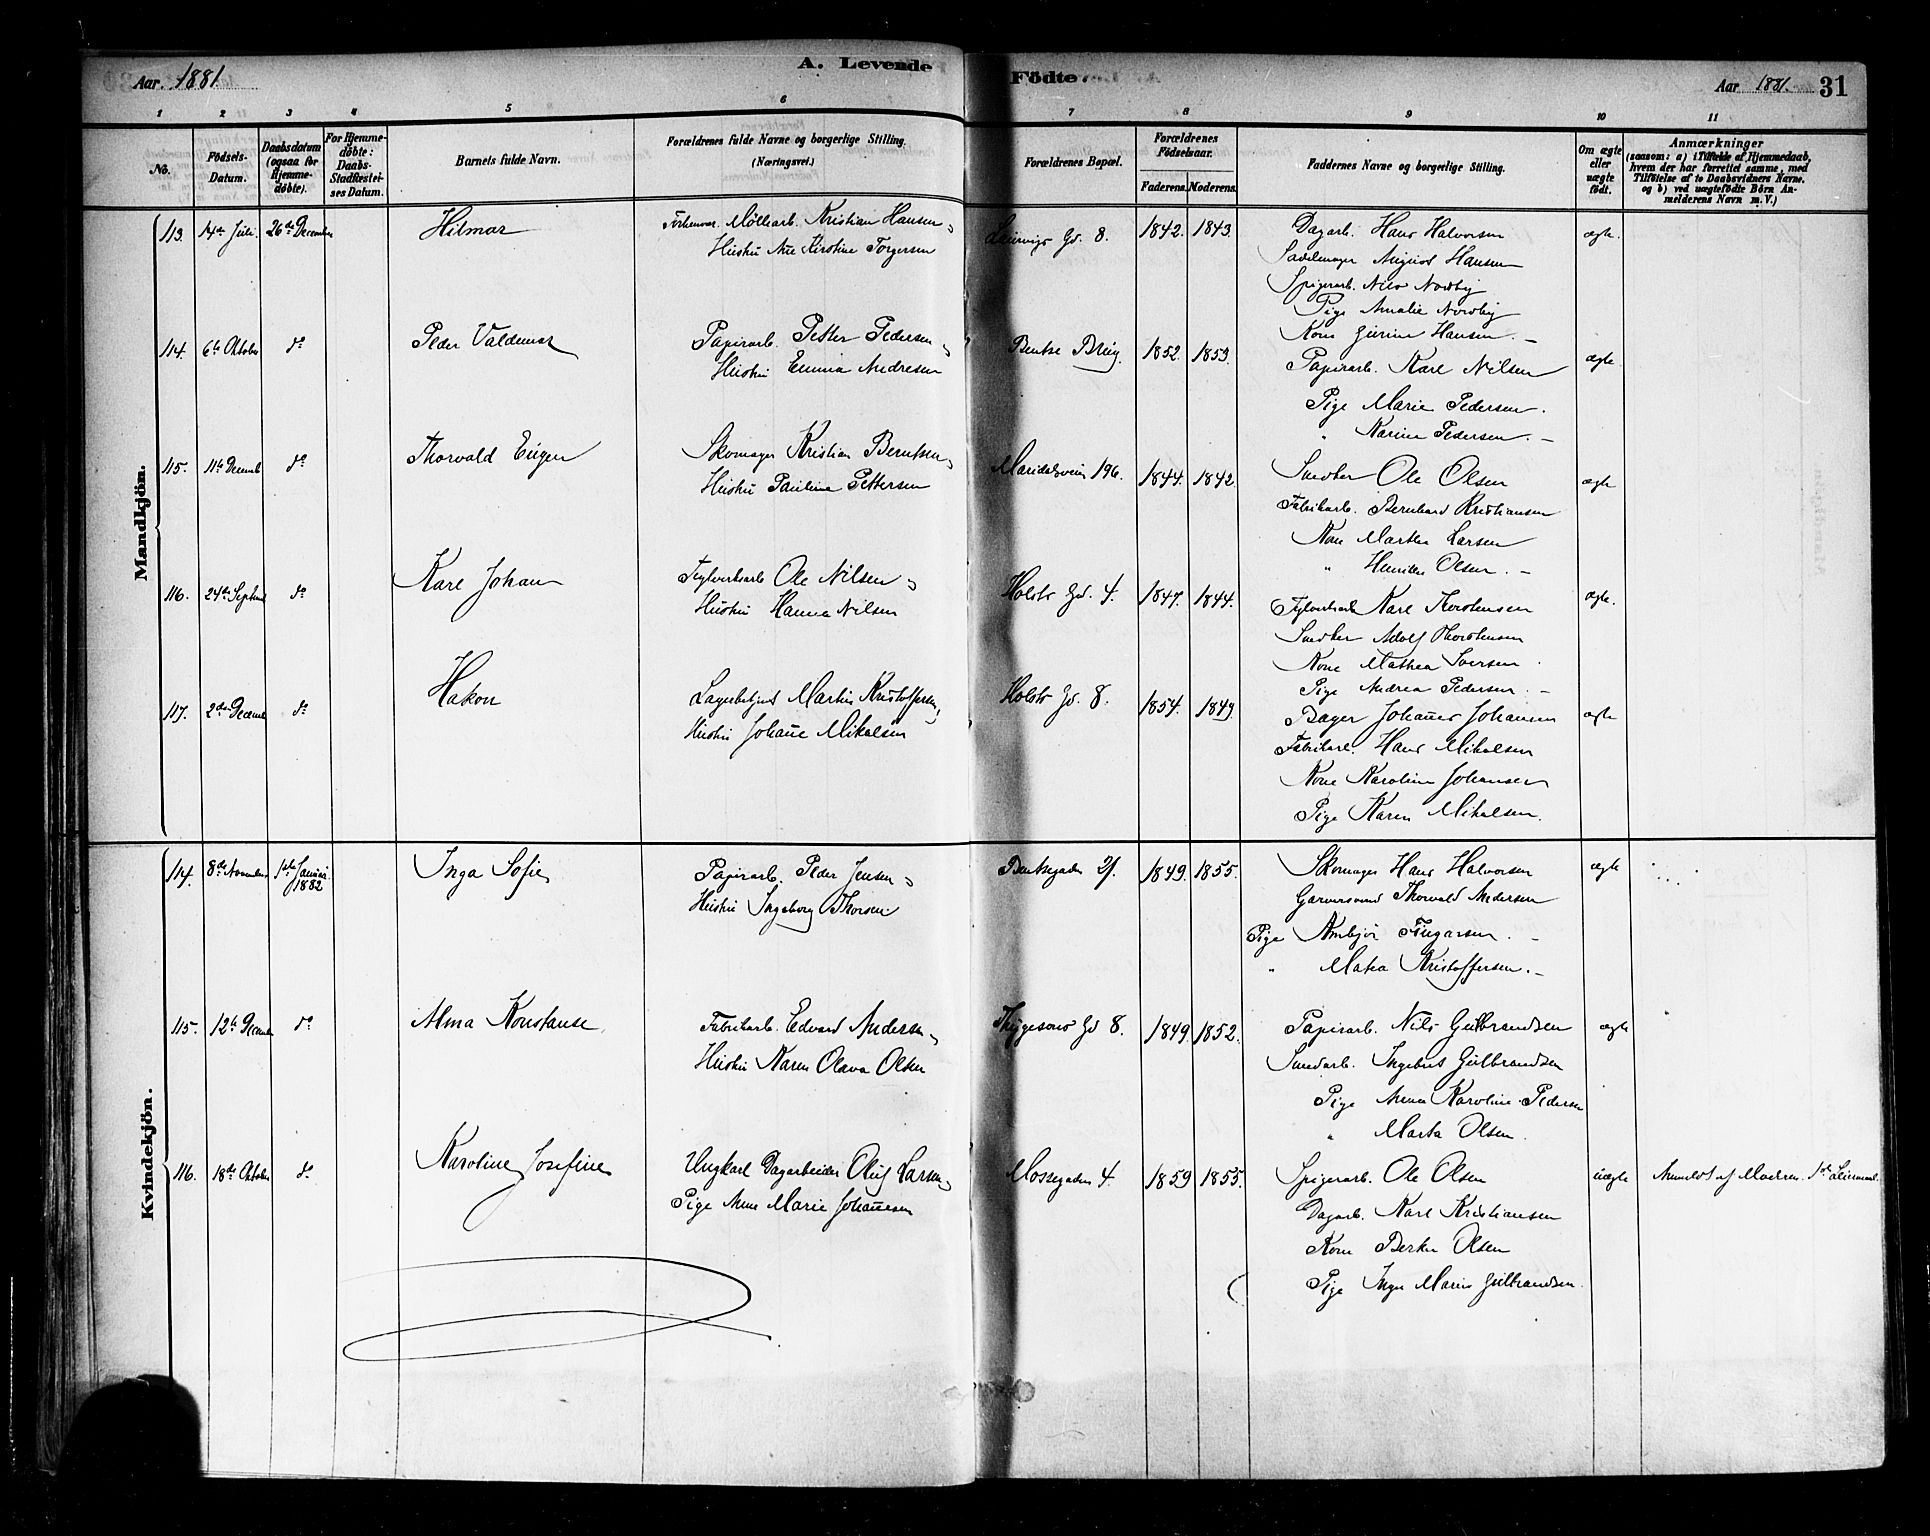 Aar 1881. A. Levende Födte Aar 1881. 31
1 2 3 4 5 6 7 8 9 10 11
No. Födsels-Datum. Daabsdatum (ogsaa for Hjemme-döbte). For Hjemme-döbte: Daabs-Stadfæstel-ses Datum. Barnets fulde Navn. Forældrenes fulde Navne og borgerlige Stilling. (Næringsvei.) Forældrenes Bopæl. Forældrenes Födselsaar. Faderens. Moderens. Faddernes Navne og borgerlige Stilling. Om ægte eller uægte födt. Anmærkninger (saasom: a) i Tilfælde af Hjemmedaab, hvem der har forrettet samme, med Tilföielse af to Daabsvidners Navne. og b) ved uægtefödte Börn An-melderens Navn m. V.)
Mandkjön.
113. 14de Juli. 26de December Hilmar Møllearb. Kristian Hansen Gd. 8. 1842. 1843. Dagarb. Hans Halvorsen ægte
Hustru Ane Kirstine Torgersen Sadelmager August Hansen
Spigerarb. Nils Nordby
Pige Amalie Nordby
Kone Hansen. –
114. 6te Oktober do Peder Valdemar Papirarb. Petter Pedersen Bentse Brug. 1852. 1853. Papirarb. Karl Nilsen ægte
Hustru Emma Andresen Pige Marie Pedersen.
" Karine Pedersen. –
115. 11te Decemb do Thorvald Eugen Skomager Kristian Berntsen Maridalsveien 196. 1844. 1842. Snedker Ole Olsen ægte
Hustru Pauline Pettersen Fabrikarb. Bernhard Kristiansen
Kone Marthe Larsen
" Olsen. –
116. 24de Septemb do Karl Johan Teglverksarb Ole Nilsen Holsts Gd. 4. 1847. 1844. Teglverksarb Karl Thorstensen ægte.
Hustru Hanna Nilsen Snedker Adolf Thorstensen
Kone Mathea Iversen
Pige Andrea Pedersen. –
117. 2den Decemb do Hakon Lagerbetjent Martin Kristoffersen Holsts Gd. 8. 1854. 1849. Bager Johannes Johansen ægte
Hustru Johanne Mikalsen Fabrikarb. Hans Mikalsen
Kone Karoline Johansen
Pige Karen Mikalsen.
Kvindekjön.
114. 8de November 1ste Januar 1882 Inga Sofie Papirarb. Peder Jensen Bentsegaden 21. 1849. 1855. Skomager Hans Halvorsen ægte
Hustru Ingeborg Thorsen. Garversvend Thorvald Andersen
Pige
" Kristoffersen. –
115. 12te Decemb do Alma Konstanse Fabrikarb. Edvard Andersen Thygesons Gd 8. 1849. 1852. Papirarb. Nils Gulbrandsen ægte
Hustru Karen Olava Olsen Smedarb. Ingebret Gulbrandsen
Pige Anna Karoline Pedersen
" Marta Olsen.
116. 18de Oktober do Karoline Josefine Ungkarl Dagarbeider Oluf Larsen Mossegaden 4. 1859 1855. Spigerarb. Ole Olsen uægte Anmeldt af Moderen. 1ste Leiermaal.
Pige Anne Marie Johannesen Dagarb. Karl Kristiansen
Kone Olsen
Pige Inga Marie Gulbrandsen.